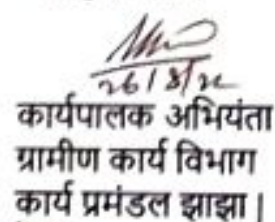 26/8/22
कार्यपालक अभियंता
ग्रामीण कार्य विभाग
कार्य प्रमंडल झाझा।